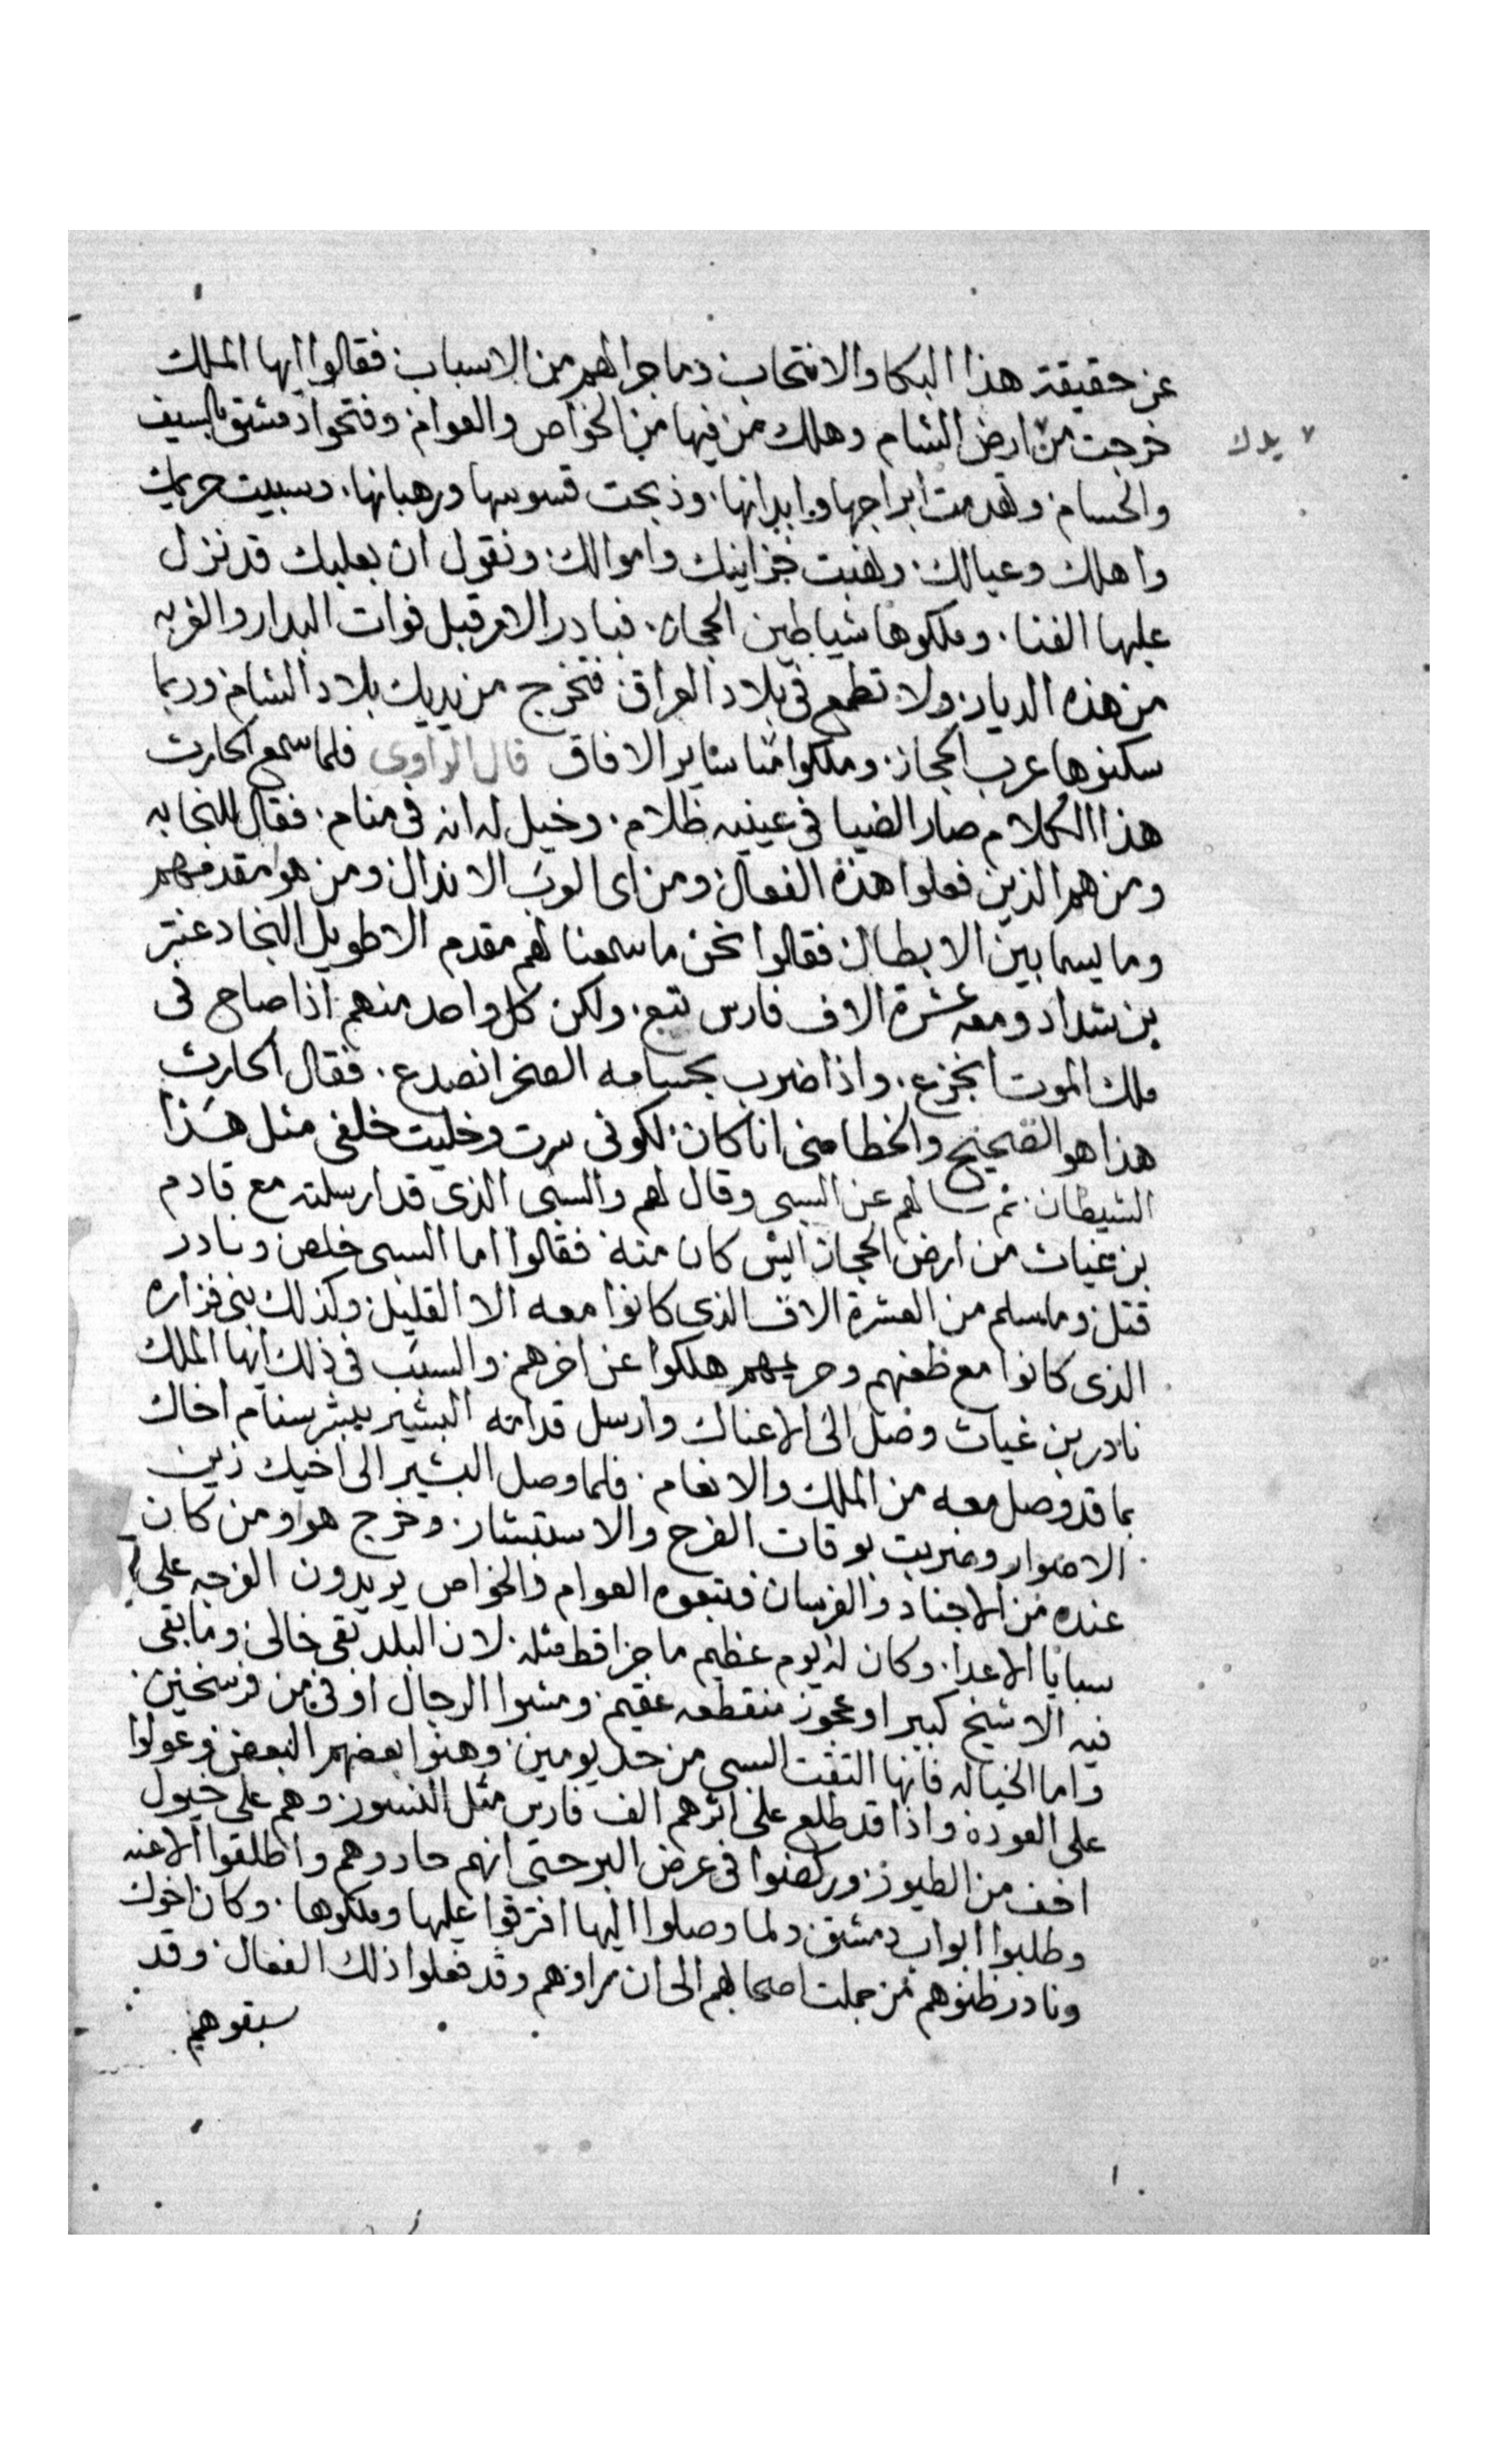 عن حقيقة هذا البكا والانتحاب وما جرا لهم من الاسباب فقالوا ايها الملك
خرجت من ارض الشام وهلك من فيها من الخواص والعوام وفتحوا دمشق بالسيف
يدك
والحسام وهدمت ابراجها وابدانها وذبحت قسوسها ورهبانها وسبيت حريمك
واهلك وعيالك ونهبت خزاينك واموالك ونقول ان بعلبك قد نزل
عليها الفنا وملكوها شياطين الحجاز فبادر الامر قبل فوات البدار والغربه
من هذه الديار ولا تطمع في بلاد العراق فتخرج من يديك بلاد الشام وربما
سكنوها عرب الحجاز وملكوا منا ساير الافاق قال الراوي فلما سمع الحارث
هذا الكلام صار الضيا في عينيه ظلام وخيل له انه في منام فقال للنجابه
ومن هم الذين فعلوا هذه الفعال ومن اى العرب الاندال ومن هو مقدمهم
وما يسما بين الابطال فقالوا نحن ما سمعنا لهم مقدم الا طويل النجاد عنتر
بن شداد ومعه عشرة الاف فارس تتبع ولكن كل واحد منهم اذا صاح في
ملك الموت انجزع واذا ضرب بحسامه الصخر انصدع فقال الحارث
هذا هو الصحيح والخطا منى انا كان لكوني سرت وخليت خلفي مثل هذا
الشيطان ثم سالهم عن السبى وقال لهم والسبى الذى قد ارسلته مع قادم
بن غياث من ارض الحجاز ايش كان منه فقالوا اما السبى خلص ونادر
قتل وما سلم من العشرة الاف الذى كانوا معه الا القليل وكذلك بنى فزاره
الذى كانوا مع ظعنهم وحريمهم هلكوا عن اخرهم والسبب في ذلك ايها الملك
نادر بن غياث وصل الى الاعناك وارسل قدامه البشير يبشر سنام اخاك
بما قد وصل معه من الملك والانعام فلما وصل البشير الى اخيك زين
الاصوار وضربت بوقات الفرح والاستبشار وخرج هو ومن كان
عنده من الاجناد والفرسان فتبعوه العوام والخواص يريدون الفرجه على
سبايا الاعدا وكان له يوم عظيم ما جرا قط مثله لان البلد بقى خالى وما بقى
فيه الا شيخ كبير او عجوز منقطعه عقيم ومشوا الرجال اوفى من فرسخين
واما الخياله فانها التقت السبى من حد يومين وهنوا بعضهم البعض وعولوا
على العوده واذا قد طلع على اثرهم الف فارس مثل النسور وهم على خيول
اخف من الطيور وركضوا في عرض البر حتى انهم حاذوهم واطلقوا الاعنه
وطلبوا ابواب دمشق ولما وصلوا اليها افترقوا عليها وملكوها وكان اخوك
ونادر ظنوهم من جملت اصحابهم الى ان راوهم وقد فعلوا ذلك الفعال وقد
سبقوهم